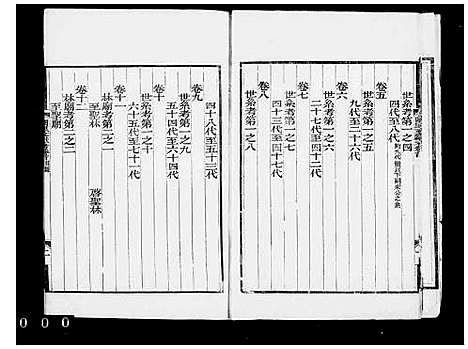 世系考第一之四
四代至八代
卷五
世系考第一之五
九代至二十六代
卷六
世系考第一之六
二十七代至四十一代
卷七
世系考第一之七
卷八
世系考第一之八
四十八代至五十三代
卷九
世系考第一之九
五十四代至六十四代
卷十
世系考第一之十
六十五代至七十一代
卷十一
林廟考第二之一
至聖林
啓聖林
卷十二
林廟考第二之二
至聖廟
000